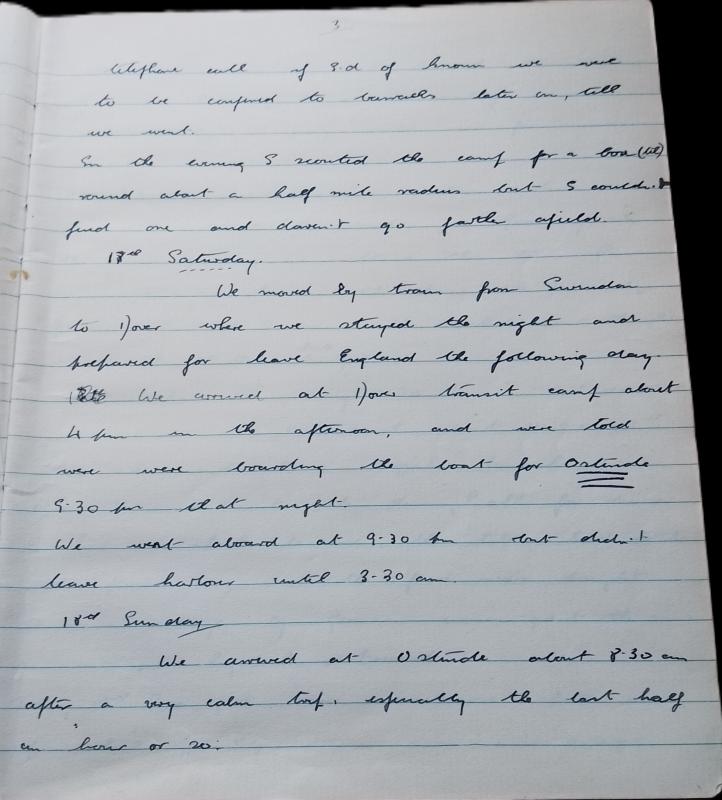 3
telephone call if I.d of known we were
to be confined to barracks later on, till
we went.
In the evening I scouted the camp for a box (tel)
round about a half mile radius but I couldn't
find one and daren't go farther afield.
Saturday.
We moved by train from Swindon
to Dover where we stayed the night and
prepared for leave England the following day.
We arrived at Dover transit camp about
4 pm in the afternoon, and were told
were were boarding the boat for Ostende
9.30 pm that night.
We went aboard at 9-30 pm but didn't
leave harbour until 3-30 am.
18rd Sunday
We arrived at Ostende about 8.30 am
after a very calm trip, especially the last half
an hour or so.